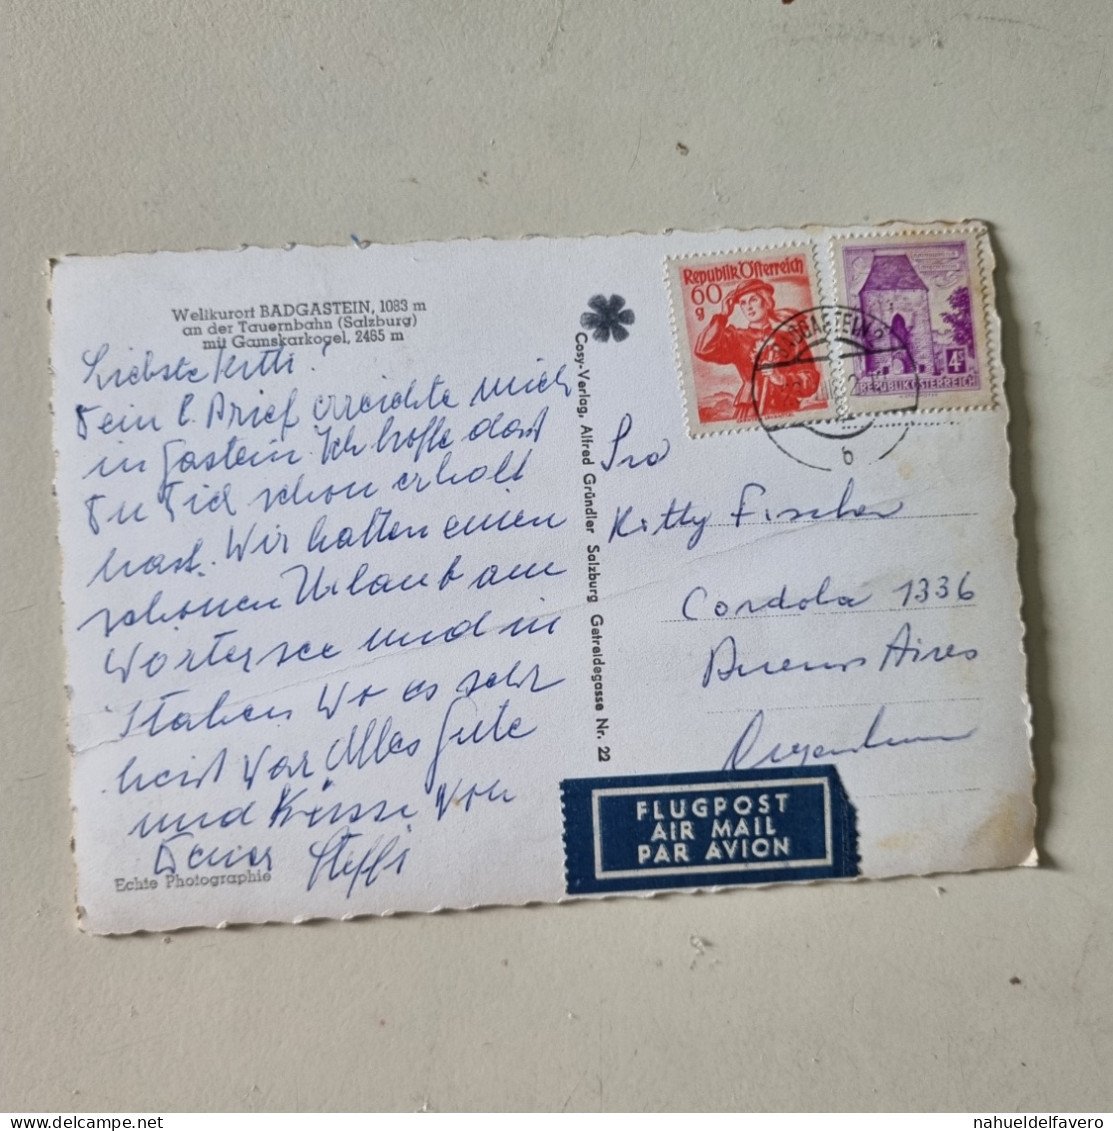 Weltkurort BADGASTEIN, 1083 m
an der Tauernbahn (Salzburg)
mit Gamskarkogel, 2465 m
Liebste Kitti!
Dein l. Brief erreichte mich
in Gastein. Ich hoffe dass
Du Dich schon erholt
hast. Wir hatten einen
schönen Urlaub am
Wörtersee und in
Italien wo es sehr
heiss war Alles Gute
und Küsse von
Deiner Steffi
Echte Photographie
Cosy-Verlag, Alfred Gründler Salzburg Getreidegasse Nr. 22
Republik Österreich
60
g
4
REPUBLIK ÖSTERREICH
BADGASTEIN
b
Sra
Kitty Fischer
Cordoba 1336
Buenos Aires
Argentinien
FLUGPOST
AIR MAIL
PAR AVION
nahueldelfavero